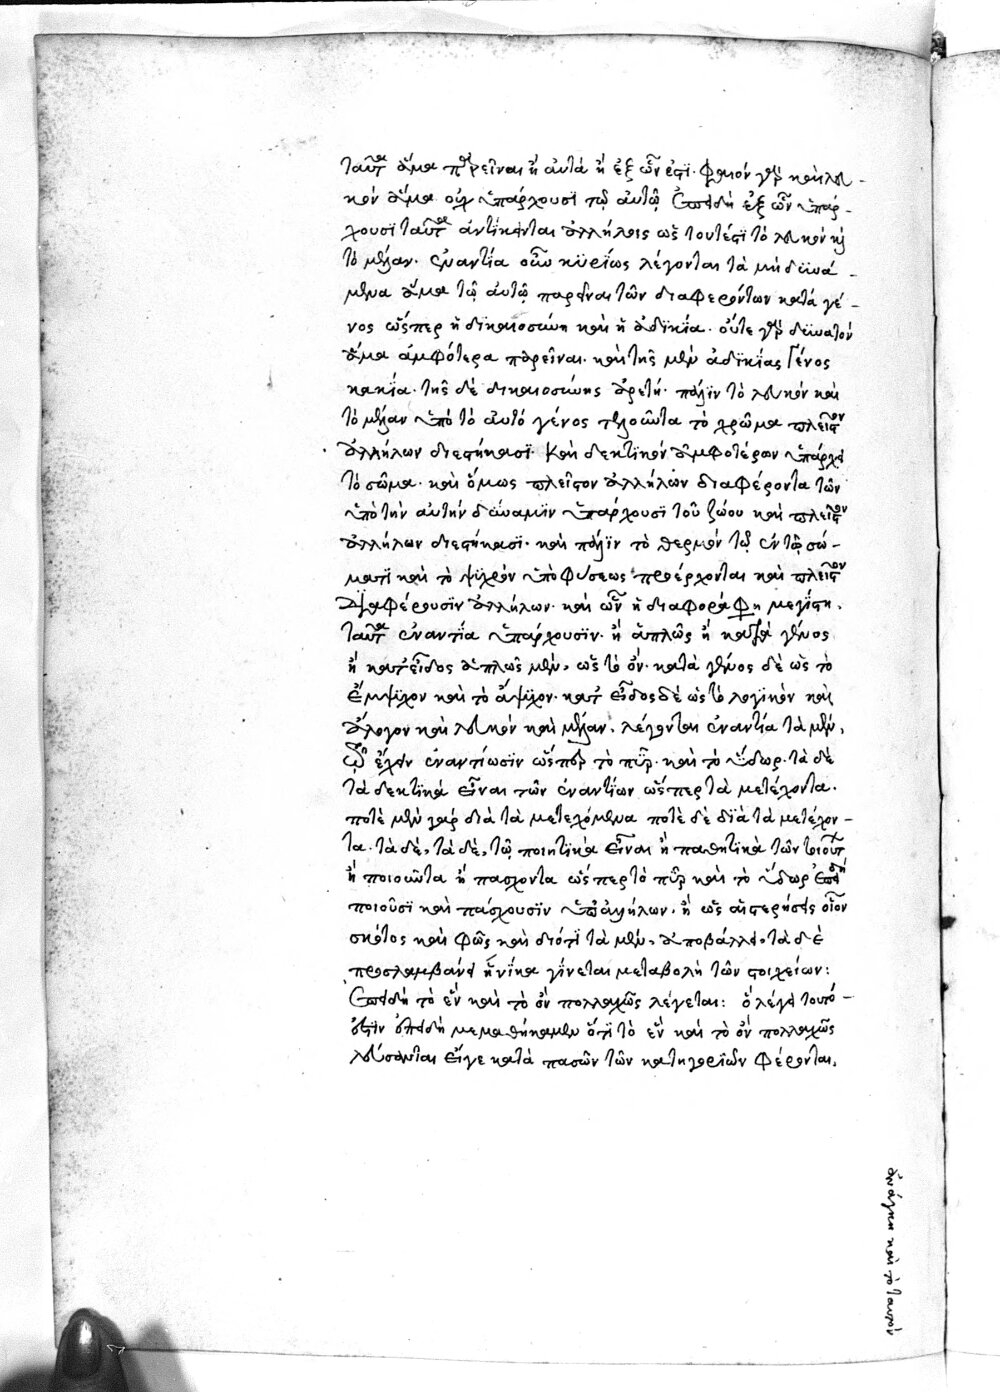 ταῦτα ἅμα παρεῖναι ἢ αὐτά ἢ ἐξ ὧν ἐστί· φαιόν γὰρ καὶ λευ-
κόν ἅμα οὐχ ὑπάρχουσι τῷ αὐτῷ Ἐπειδὴ ἐξ ὧν ὑπάρ-
χουσι ταῦτα ἀντίκεινται ἀλλήλοις ὡς τουτέστι τὸ λευκόν καὶ
τὸ μέλαν. ἐναντία οὖν κυρίως λέγονται τὰ μὴ δυνά-
μενα ἅμα τῷ αὐτῷ παρεῖναι τῶν διαφερόντων κατά γέ-
νος ὥσπερ ἡ δικαιοσύνη καὶ ἡ ἀδικία. οὔτε γὰρ δυνατόν
ἅμα ἀμφότερα παρεῖναι. καὶ τῆς μὲν ἀδικίας γένος
κακία. τῆς δὲ δικαιοσύνης ἀρετή. πάλιν τὸ λευκόν καὶ
τὸ μέλαν ὑπὸ τὸ αὐτό γένος τελοῦντα τὸ χρῶμα πλεῖστον
ἀλλήλων διεστήκασι. Καὶ δεκτικόν ἀμφοτέρων ὑπάρχει
τὸ σῶμα. καὶ ὅμως πλεῖστον ἀλλήλων διαφέροντα τῶν
ὑπὸ τὴν αὐτήν δύναμιν ὑπάρχουσι τοῦ ζώου καὶ πλεῖστον
ἀλλήλων διεστήκασι. καὶ πάλιν τὸ θερμόν τῷ ἐν τῷ σώ-
ματι καὶ τὸ ψυχρόν ὑπὸ φύσεως προέρχονται καὶ πλεῖστον
Διαφέρουσιν ἀλλήλων. καὶ ὧν ἡ διαφορά φη μεγίστη.
ταῦτα ἐναντία ὑπάρχουσιν. ἢ ἁπλῶς ἢ κατὰ γένος
ἢ κατ' εἶδος ἁπλῶς μὲν, ὡς τὸ ὄν. κατὰ γένος δὲ ὡς τὸ
ἔμψυχον καὶ τὸ ἄψυχον. κατ' εἶδος δὲ ὡς τὸ λογικὸν καὶ
ἄλογον καὶ λευκὸν καὶ μέλαν. λέγονται ἐναντία τὰ μὲν,
ἔχειν ἐναντίωσιν ὥσπερ τὸ πῦρ. καὶ τὸ ὕδωρ. τὰ δὲ
τὰ δεκτικά εἶναι τῶν ἐναντίων ὥσπερ τὰ μετέχοντα.
ποτὲ μὲν γάρ διὰ τὰ μετεχόμενα ποτὲ δὲ διὰ τὰ μετέχον-
τα. τὰ δὲ, τὰ δὲ, τῷ ποιητικὰ εἶναι ἢ παθητικὰ τῶν τοιούτων
ἢ ποιοῦντα ἢ πάσχοντα ὥσπερ τὸ πῦρ καὶ τὸ ὕδωρ ἐπειδὴ
ποιοῦσι καὶ πάσχουσιν ὑπ' ἀλλήλων. ἢ ὡς αἱ στερήσεις οἷον
σκότος καὶ φῶς καὶ διότι τὰ μὲν, ἀποβάλλει. τὰ δὲ
προσλαμβάνει ἡνίκα γίνεται μεταβολὴ τῶν στοιχείων:
Ἐπειδὴ τὸ ἓν καὶ τὸ ὂν πολλαχῶς λέγεται: ὃ λέγει τοῦτό-
ἐστιν ἐπειδὴ μεμαθήκαμεν ὅτι τὸ ἓν καὶ τὸ ὂν πολλαχῶς
εἴγε κατὰ πασῶν τῶν κατηγοριῶν φέρονται.
ἀνάγκη καὶ τὸ ταυτὸν